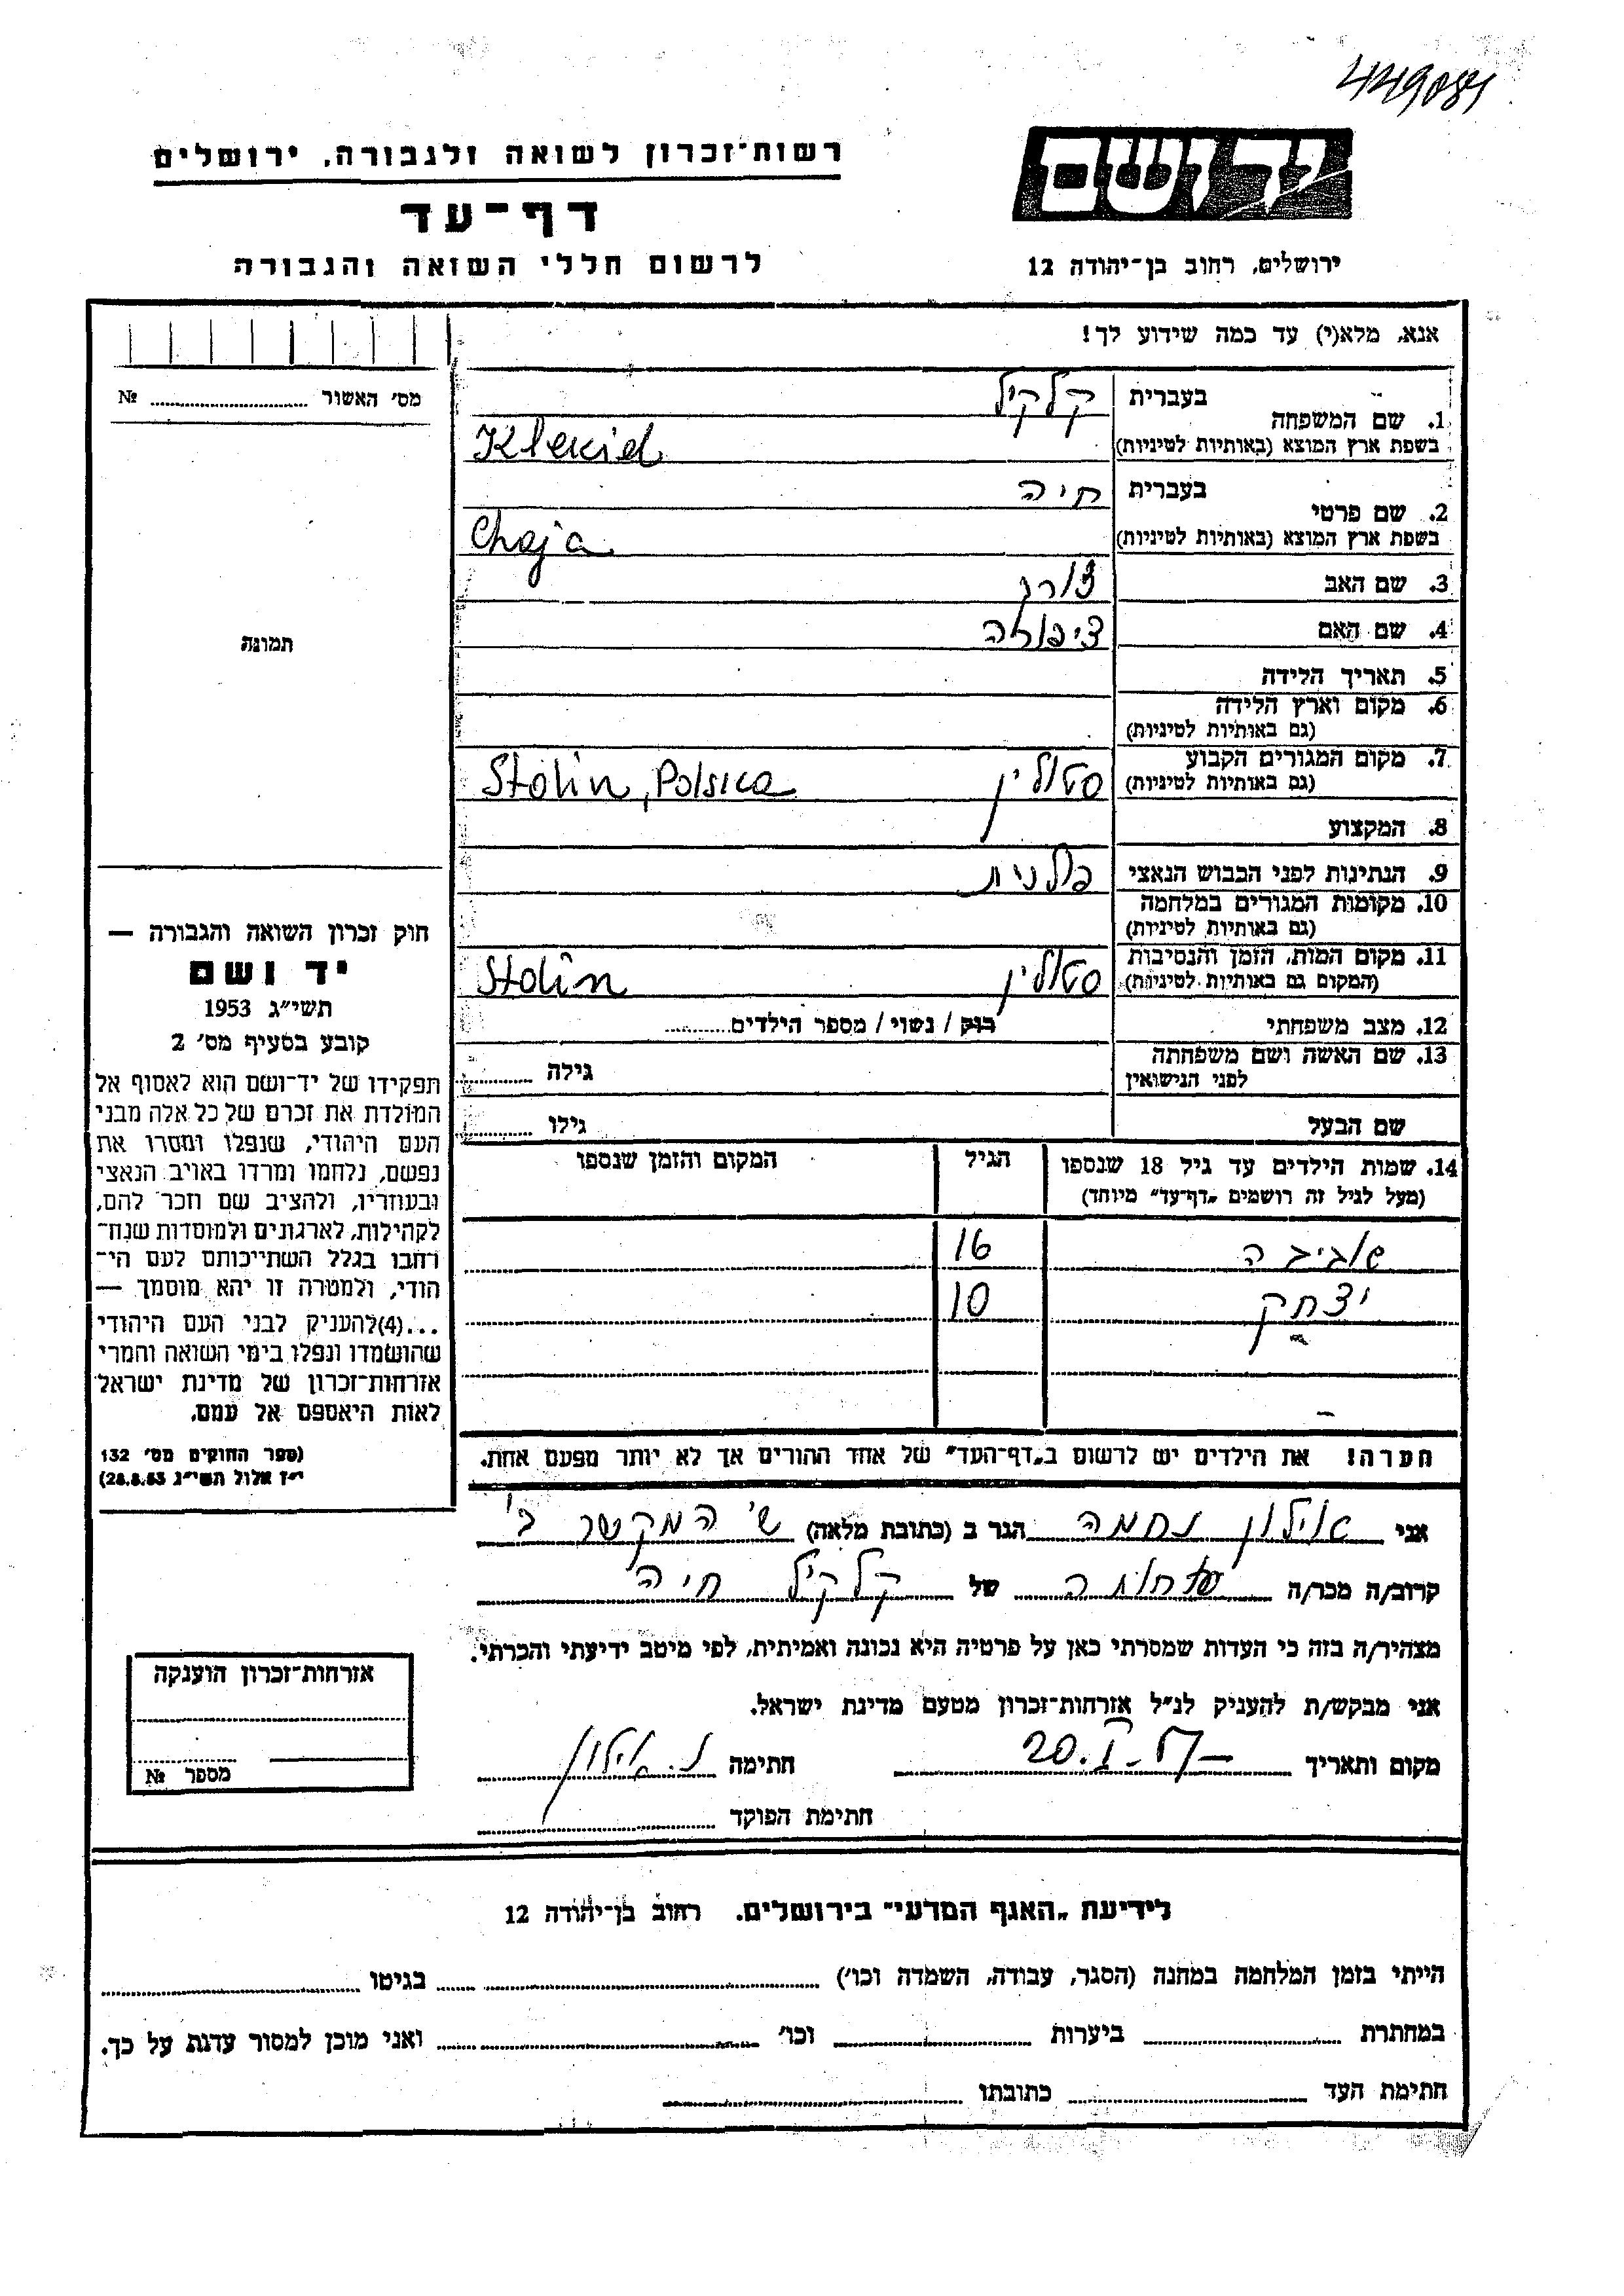 449081
רשות־זכרון לשואה ולגבורה, ירושלים
דף־עד
לרשום חללי השואה והגבורה
יד ושם
ירושלים, רחוב בן־יהודה 12
אנא, מלא(י) עד כמה שידוע לך!
מס׳ האשור № 
1. שם המשפחה בעברית קלקיל
בשפת ארץ המוצא (באותיות לטיניות) Klekiel
2. שם פרטי בעברית חיה
בשפת ארץ המוצא (באותיות לטיניות) Chaja
3. שם האב
4. שם האם ציפורה
5. תאריך הלידה
6. מקום וארץ הלידה
(גם באותיות לטיניות)
7. מקום המגורים הקבוע סטולין Stolin, Polska
(גם באותיות לטיניות)
8. המקצוע
9. הנתינות לפני הכבוש הנאצי פולנית
10. מקומות המגורים במלחמה
(גם באותיות לטיניות)
11. מקום המות, הזמן והנסיבות סטולין Stolin
(המקום גם באותיות לטיניות)
12. מצב משפחתי רווק / נשוי / מספר הילדים
13. שם האשה ושם משפחתה גילה
לפני הנישואין
שם הבעל גילו
14. שמות הילדים עד גיל 18 שנספו הגיל המקום והזמן שנספו
(מעל לגיל זה רושמים „דף־עד״ מיוחד)
16
יצחק 10
הערה! את הילדים יש לרשום ב„דף־העד״ של אחד ההורים אך לא יותר מפעם אחת.
תמונה
חוק זכרון השואה והגבורה —
יד ושם
תשי״ג 1953
קובע בסעיף מס׳ 2
תפקידו של יד־ושם הוא לאסוף אל
המולדת את זכרם של כל אלה מבני
העם היהודי, שנפלו ומסרו את
נפשם, נלחמו ומרדו באויב הנאצי
ובעוזריו, ולהציב שם וזכר להם,
לקהילות, לארגונים ולמוסדות שנח־
רבו בגלל השתייכותם לעם הי־
הודי, ולמטרה זו יהא מוסמך —
...(4)להעניק לבני העם היהודי
שהושמדו ונפלו בימי השואה והמרי
אזרחות־זכרון של מדינת ישראל
לאות היאספם אל עמם.
(ספר החוקים מס׳ 132
י״ז אלול תשי״ג 28.8.53)
אני אילון נחמה הגר ב (כתובת מלאה) ש׳ המקשר ב׳
קרוב/ה מכר/ה של קלקיל חיה
מצהיר/ה בזה כי העדות שמסרתי כאן על פרטיה היא נכונה ואמיתית, לפי מיטב ידיעתי והכרתי.
אני מבקש/ת להעניק לנ״ל אזרחות־זכרון מטעם מדינת ישראל.
מקום ותאריך חתימה נ. אילון
חתימת הפוקד
אזרחות־זכרון הוענקה
מספר №
לידיעת „האגף המדעי״ בירושלים. רחוב בן־יהודה 12
הייתי בזמן המלחמה במחנה (הסגר, עבודה, השמדה וכו׳) בגיטו
במחתרת ביערות וכו׳ ואני מוכן למסור עדות על כך.
חתימת העד כתובתו